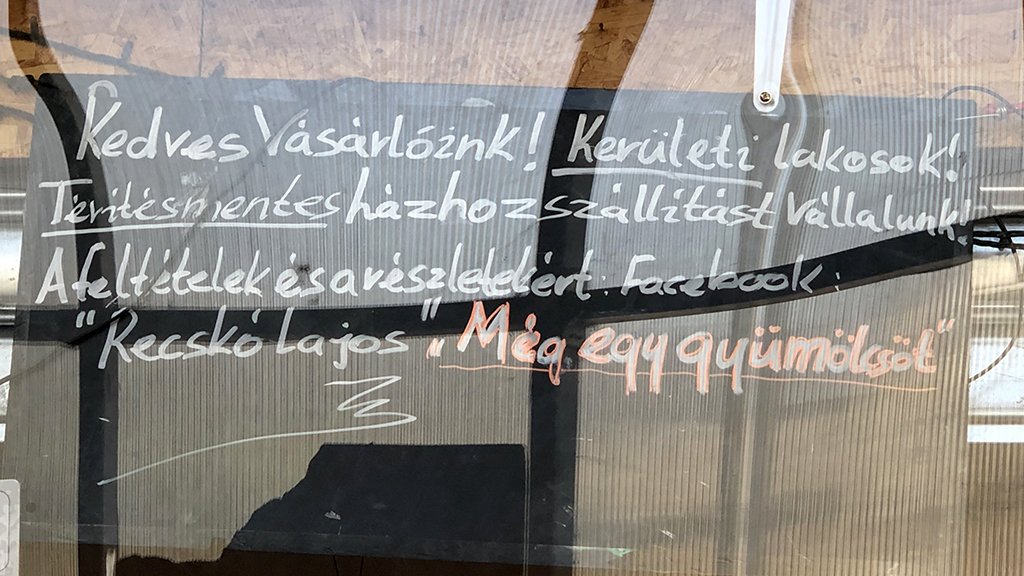 Kedves Vásárlóink! Kerületi lakosok!
Térítésmentes házhozszállítást vállalunk!
A feltételek és a részletekért: Facebook:
"Recskó Lajos" „Még egy gyümölcsöt"